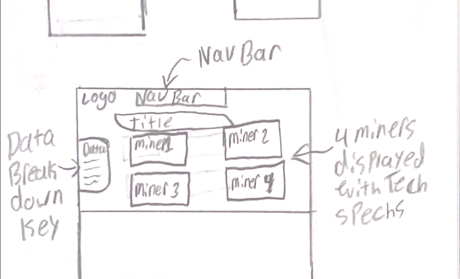 NavBar
Logo NavBar
title
Data
miner1
miner 2
miner 3
miner 4
Data
Break
down
Key
4 miners
displayed
with Tech
spechs